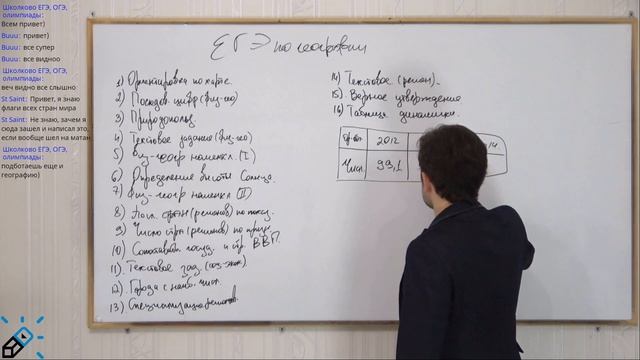 Школково ЕГЭ, ОГЭ,
олимпиады:
Всем привет)
Buuu: привет)
Buuu: все супер
Buuu: все видноо
Школково ЕГЭ, ОГЭ,
олимпиады:
веч видно все слышно
St Saint: Привет, я знаю
флаги всех стран мира
St Saint: Не знаю, зачем я
сюда зашел и написал это,
если вообще шел на матан
Школково ЕГЭ, ОГЭ,
олимпиады:
подботаешь еще и
географию)
ЕГЭ по географии
1) Ориентировка по карте.
2) Последов. цифр (физ-гео)
3) Природопольз.
4) Текстовое задание (физ-гео)
5) Физ-геогр номенкл. (I)
6) Определение высоты Солнца.
7) Физ-геогр номенкл (II)
8) стран (регионов) по
9) Число стран (регионов) по
10) Сопоставл. госуд. и стр. ВВП.
11) Текстовое зад. (соц-экон).
12) Города с наиб. числ.
13) Специализация регионов.
14) Текстовое (регион).
15) Верное утверждение
16) Таблица динамики.
2012
14
Числ. 99,1